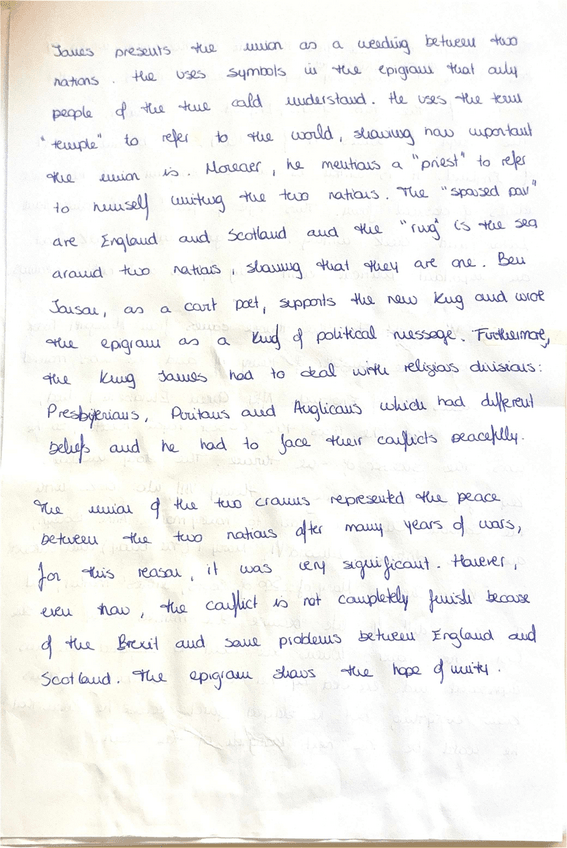 James presents the union as a weeding between two
nations. He uses symbols in the epigram that only
people of the time cold understand. He uses the term
"temple" to refer to the world, showing how important
the union is. Moreover, he mentions a "priest" to refer
to himself uniting the two nations. The "spoused pair"
are England and Scotland and the "ring" is the sea
around two nations, showing that they are one. Ben
Jonson, as a court poet, supports the new King and wrote
the epigram as a kind of political message. Furthermore,
the King James had to deal with religious divisions:
Presbyterians, Puritans and Anglicans which had different
beliefs and he had to face their conflicts peacefully.
The union of the two crowns represented the peace
between the two nations after many years of wars,
for this reason, it was very significant. However,
even now, the conflict is not completely finish because
of the Brexit and some problems between England and
Scotland. The epigram shows the hope of unity.